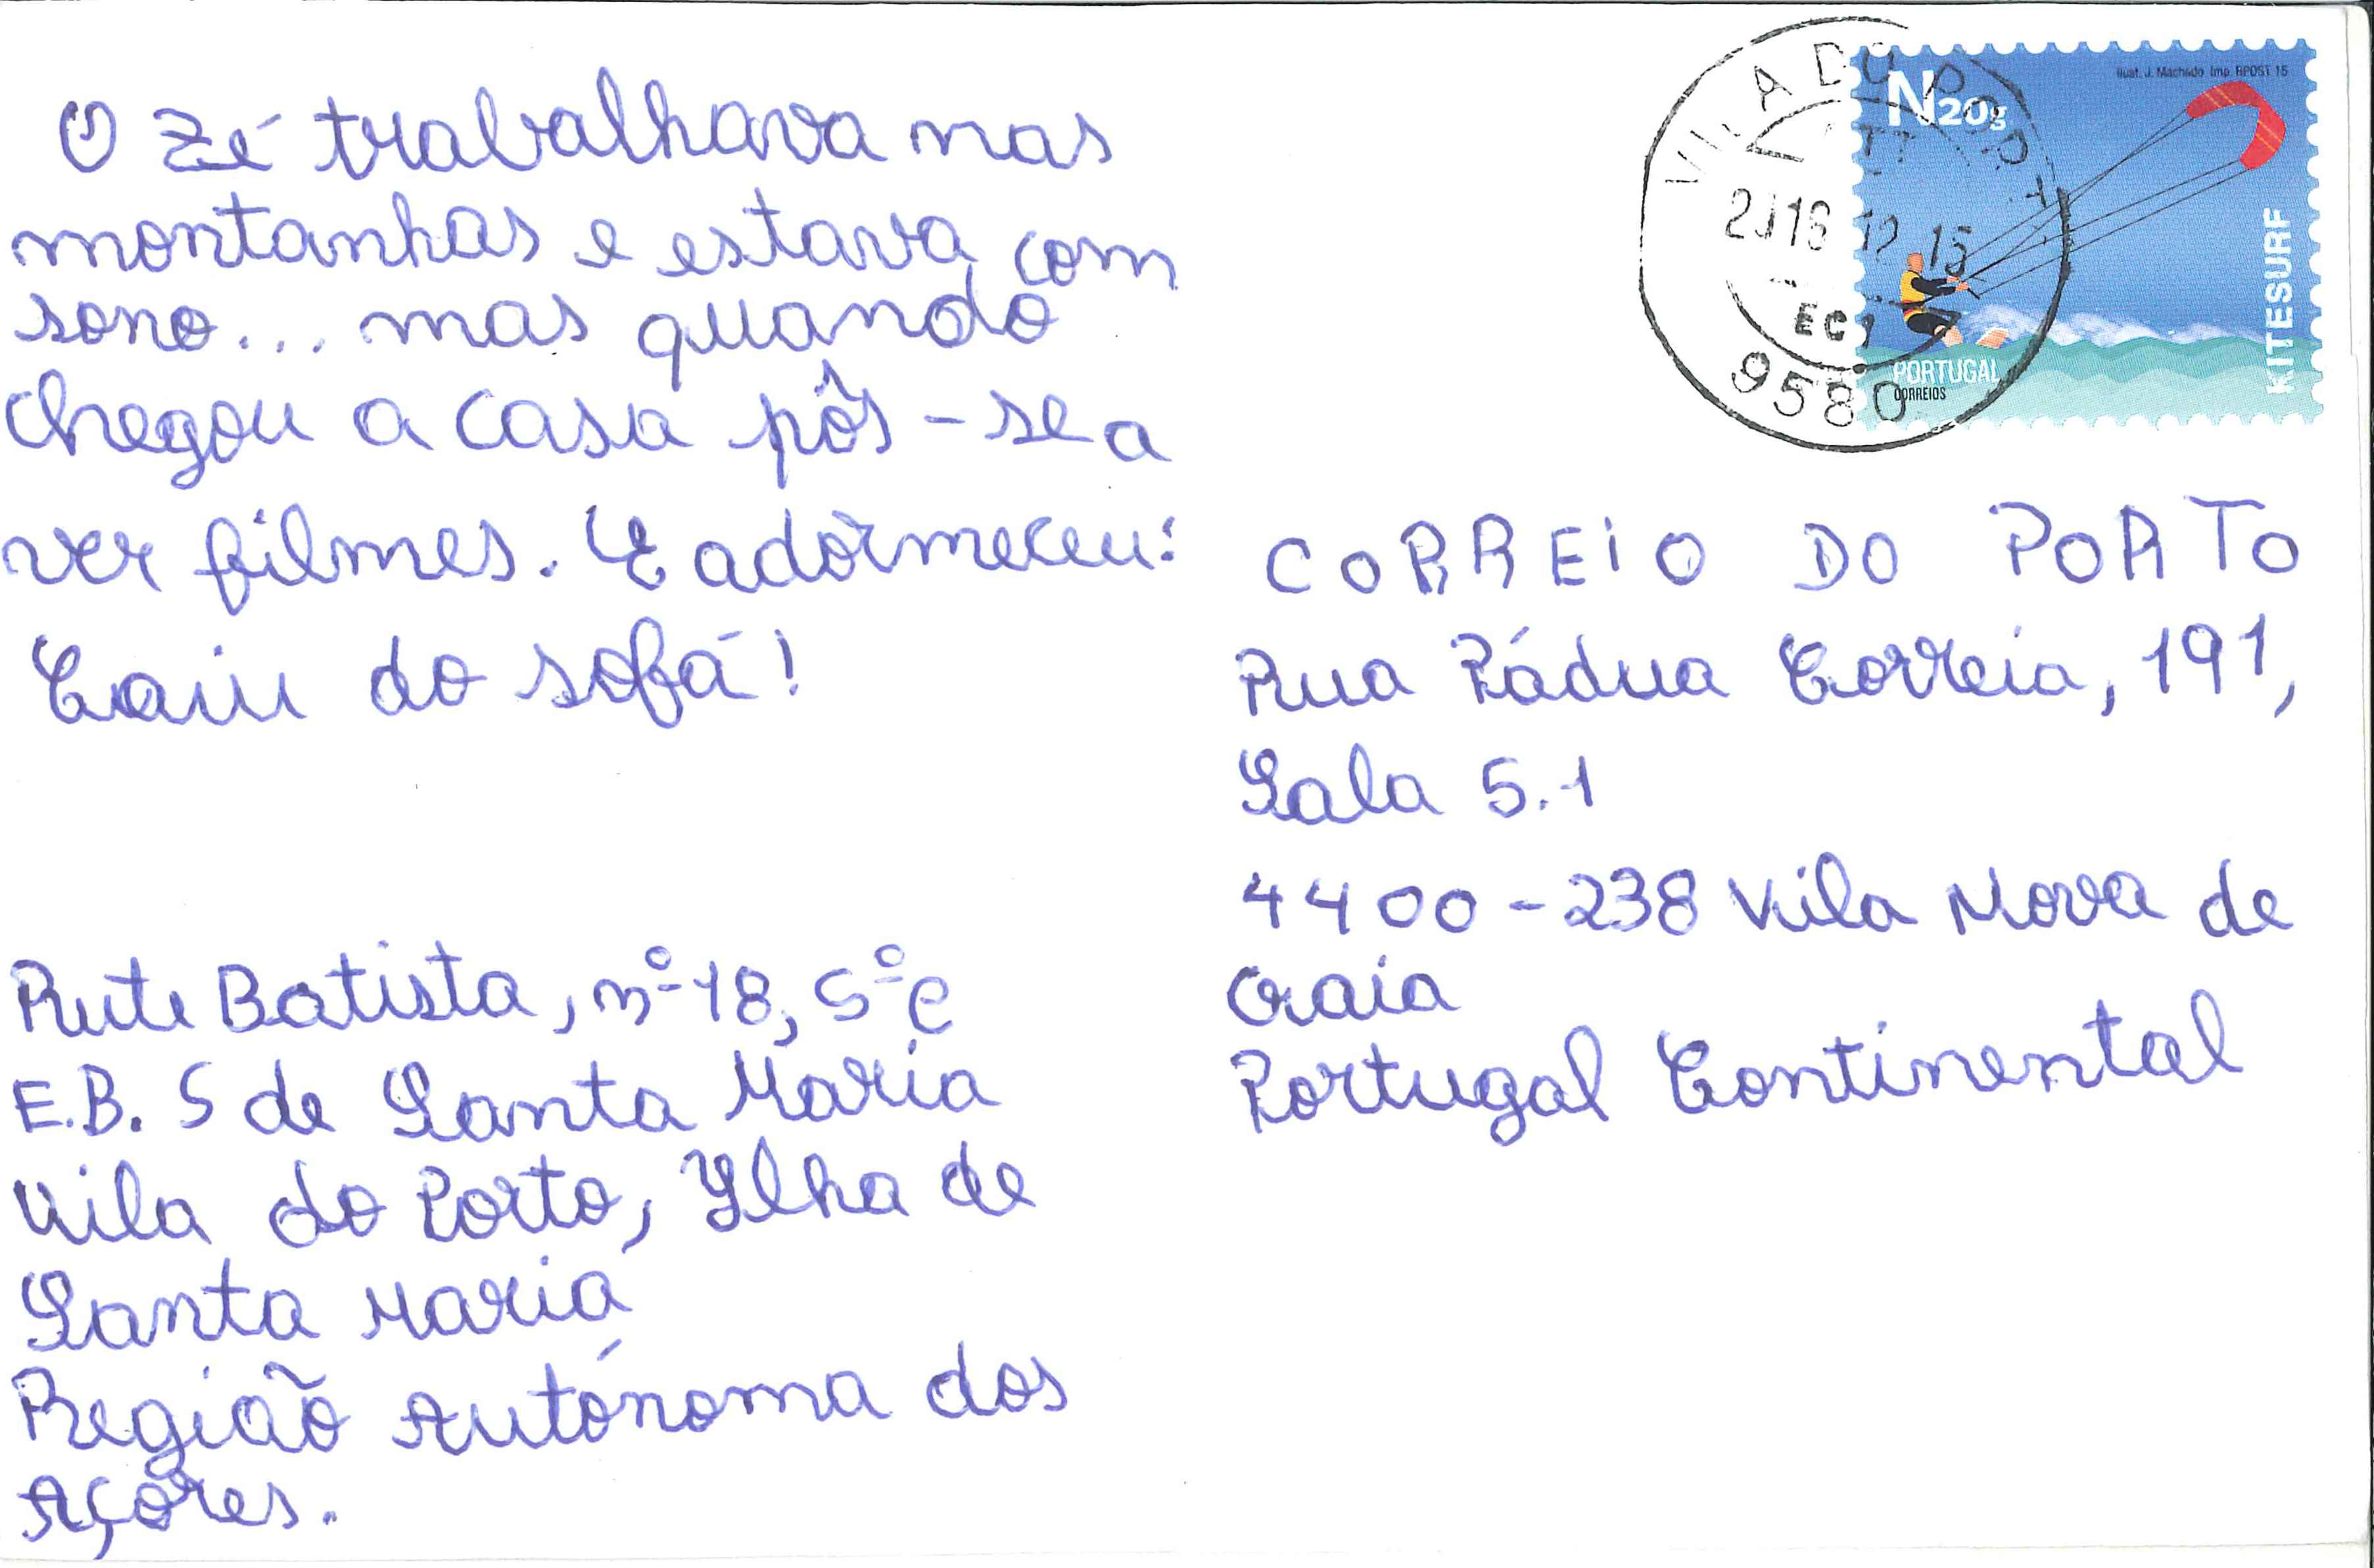 O Zé trabalhava nas
montanhas e estava com
sono... mas quando
chegou a casa pôs-se a
ver filmes. E adormeceu:
Caiu do sofá!
Rute Batista, nº 18, 5º C
E.B. S de Santa Maria
Vila do Porto, Ilha de
Santa Maria
Região Autónoma dos
Açores.
VILA DO PORTO
9580
N20g
Ilust. J. Machado Imp. BPOST 15
KITESURF
PORTUGAL
CORREIOS
CORREIO DO PORTO
Rua Pádua Correia, 191,
Sala 5.1
4400-238 Vila Nova de
Gaia
Portugal Continental